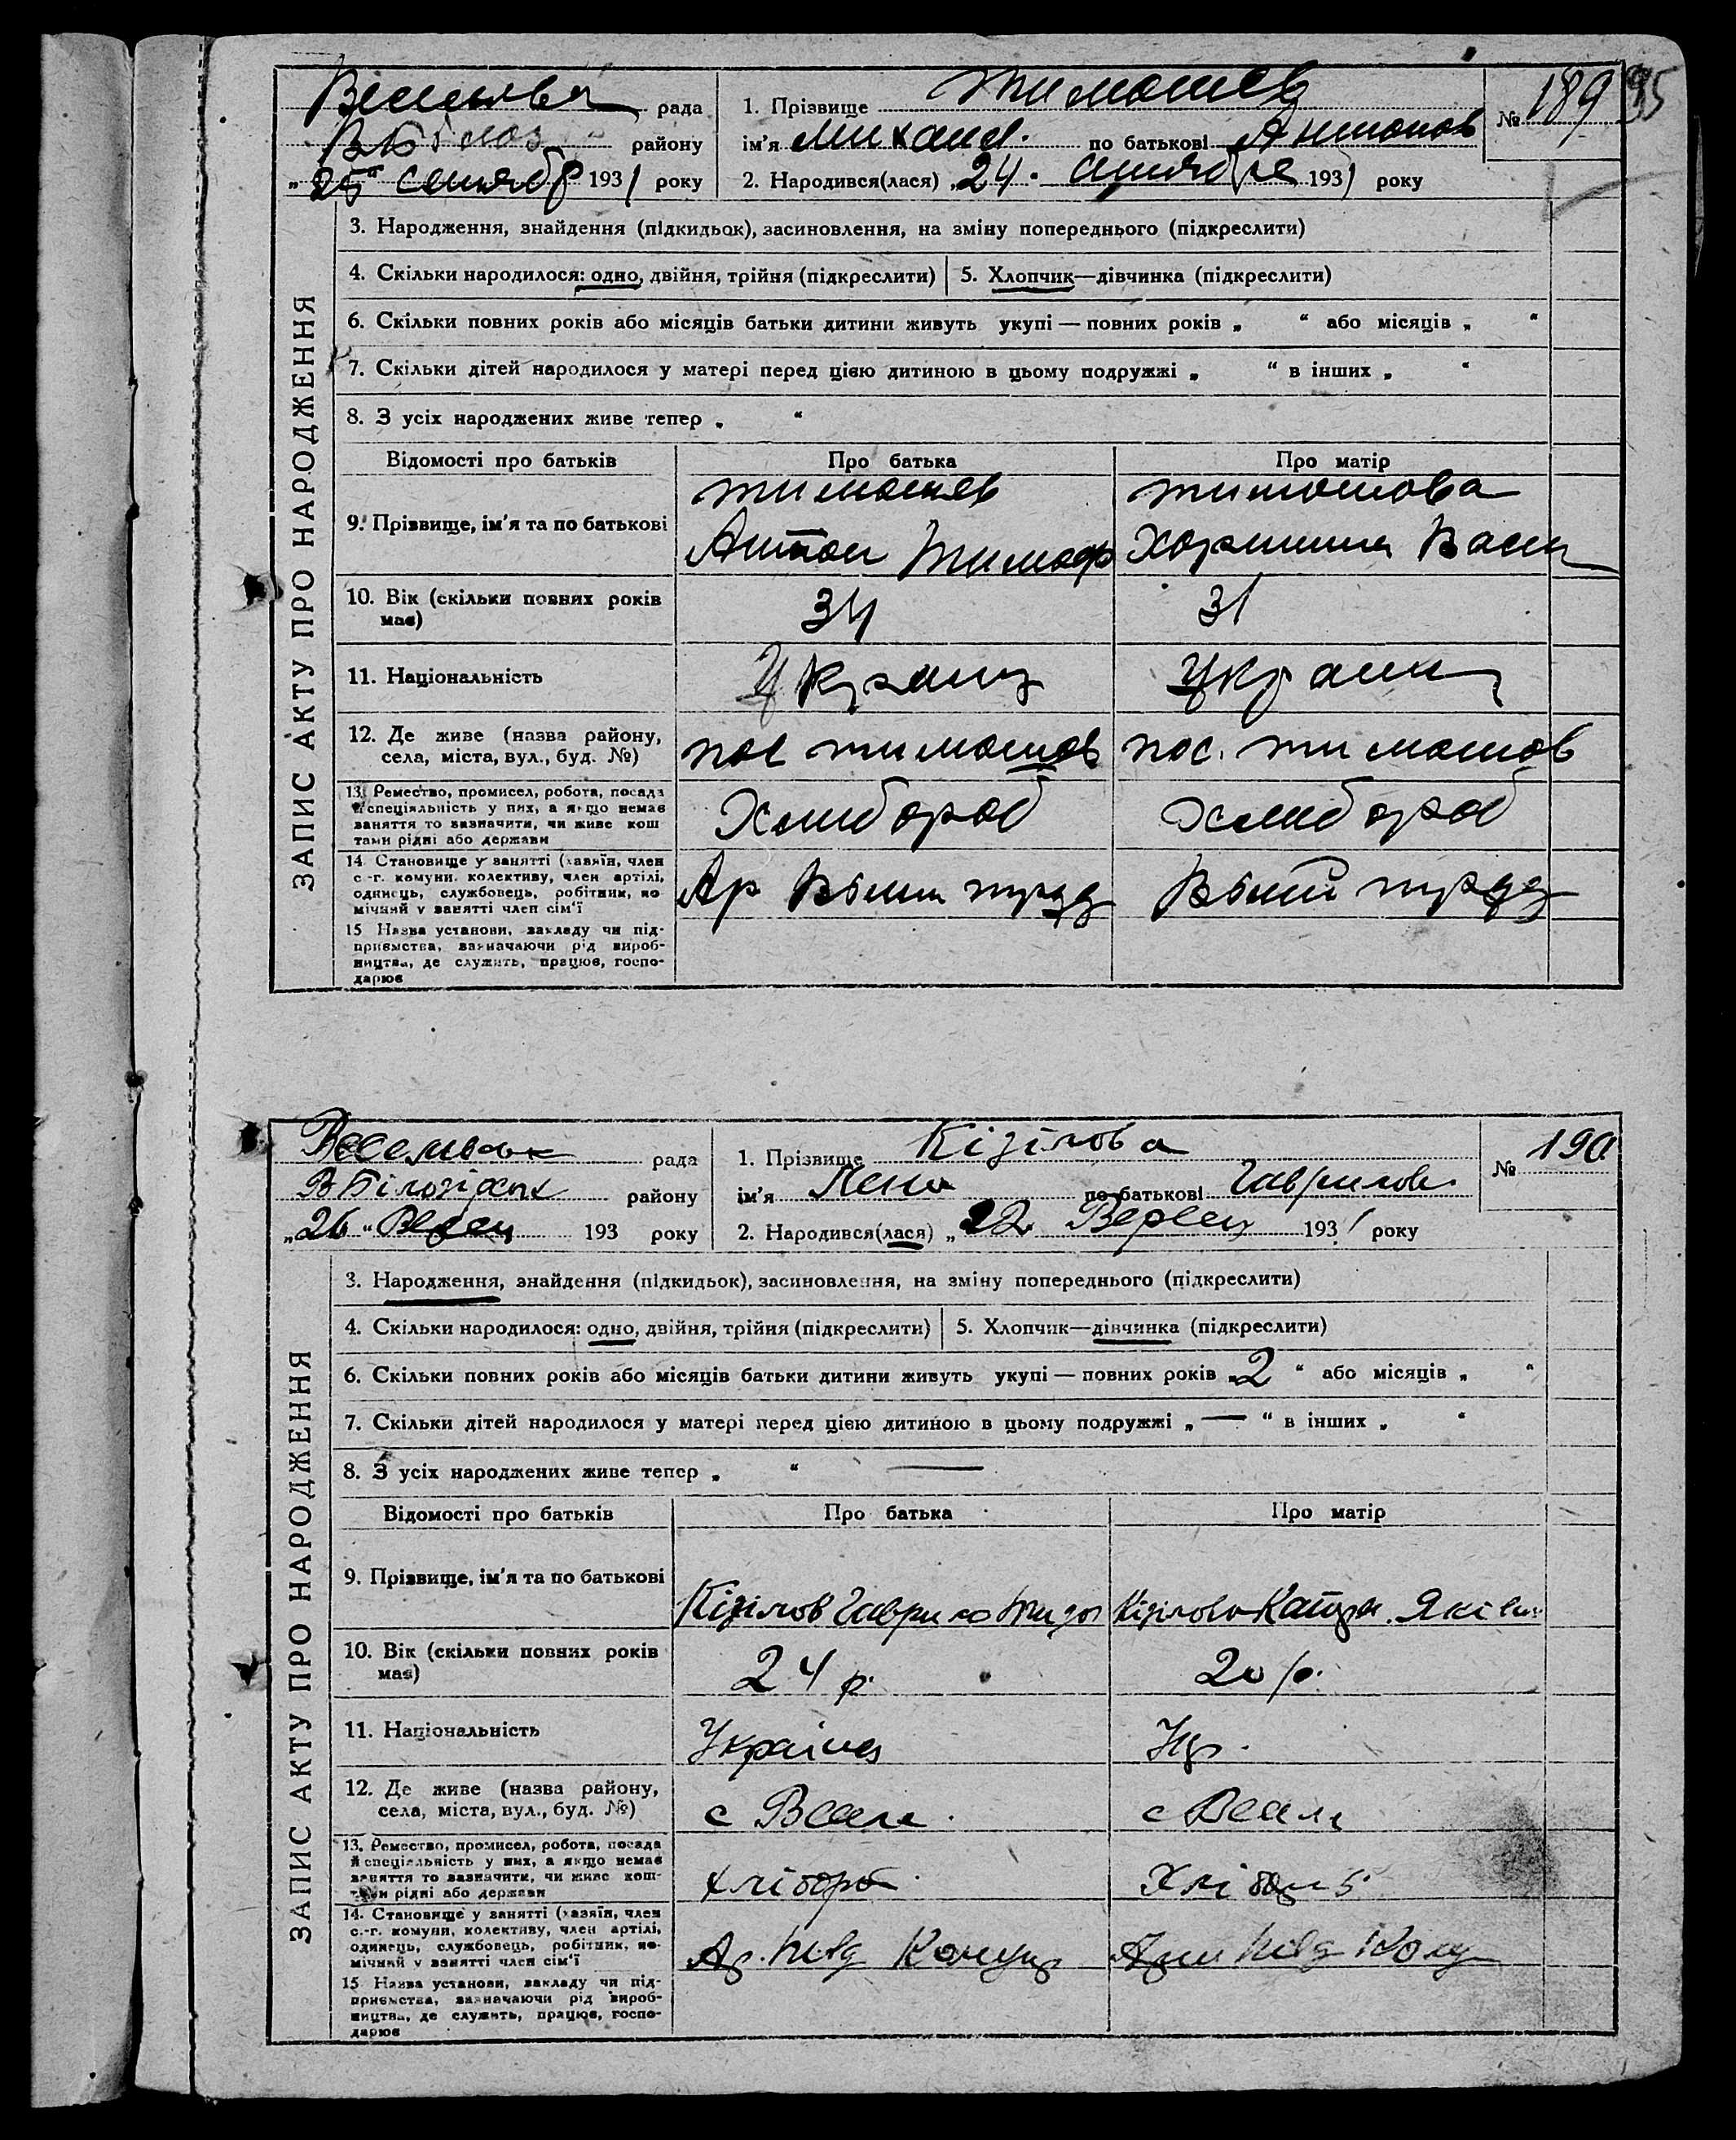 95
рада
1. Прізвище Тимошев
№ 189
району
ім'я Михаил. по батькові Антонов
„25“ сентябр 1931 року
2. Народився(лася) „24. сентября 1931 року
ЗАПИС АКТУ ПРО НАРОДЖЕННЯ
3. Народження, знайдення (підкидьок), засиновлення, на зміну попереднього (підкреслити)
4. Скільки народилося: одно, двійня, трійня (підкреслити)
5. Хлопчик—дівчинка (підкреслити)
6. Скільки повних років або місяців батьки дитини живуть укупі — повних років „ “ або місяців „ “
7. Скільки дітей народилося у матері перед цією дитиною в цьому подружжі „ “ в інших „ “
8. З усіх народжених живе тепер „ “
Відомості про батьків
Про батька
Про матір
9. Прізвище, ім'я та по батькові
Тимошев
Антон Тимоф
Тимошова
Васи
10. Вік (скільки повних років
має)
34
31
11. Національність
Украинц
Украин
12. Де живе (назва району,
села, міста, вул., буд. №)
пос Тимошов
пос. Тимошов
13. Ремество, промисел, робота, посада
й спеціяльність у них, а якщо немає
заняття то зазначити, чи живе кош
тами рідні або держави
Хлибороб
Хлибороб
14. Становище у занятті (хазяїн, член
с.-г. комуни, колективу, член артілі,
одинець, службовець, робітник, по
мічний у занятті член сім'ї
Ар
15. Назва установи, закладу чи під-
приємства, зазначаючи рід вироб-
ництва, де служить, працює, госпо-
дарює
рада
1. Прізвище Кізілова
№ 190
В Білозірськ району
ім'я по батькові Гаврилов.
„26“ Верес 193 року
2. Народився(лася) „22. Версец 1931 року
ЗАПИС АКТУ ПРО НАРОДЖЕННЯ
3. Народження, знайдення (підкидьок), засиновлення, на зміну попереднього (підкреслити)
4. Скільки народилося: одно, двійня, трійня (підкреслити)
5. Хлопчик—дівчинка (підкреслити)
6. Скільки повних років або місяців батьки дитини живуть укупі — повних років „2“ або місяців „ “
7. Скільки дітей народилося у матері перед цією дитиною в цьому подружжі „—“ в інших „ “
8. З усіх народжених живе тепер „ “ —
Відомості про батьків
Про батька
Про матір
9. Прізвище, ім'я та по батькові
Кізілов Гаврило
Кізілова Катер. Яківл
10. Вік (скільки повних років
має)
24 р.
20 р.
11. Національність
Українец
Укр.
12. Де живе (назва району,
села, міста, вул., буд. №)
с Весел.
с Весел
13. Ремество, промисел, робота, посада
й спеціяльність у них, а якщо немає
заняття то зазначити, чи живе кош-
тами рідні або держави
Хлібороб
Хлібороб
14. Становище у занятті (хазяїн, член
с.-г. комуни, колективу, член артілі,
одинець, службовець, робітник, по-
мічний у занятті член сім'ї
Ар.
15. Назва установи, закладу чи під-
приємства, зазначаючи рід вироб-
ництва, де служить, працює, госпо-
дарює